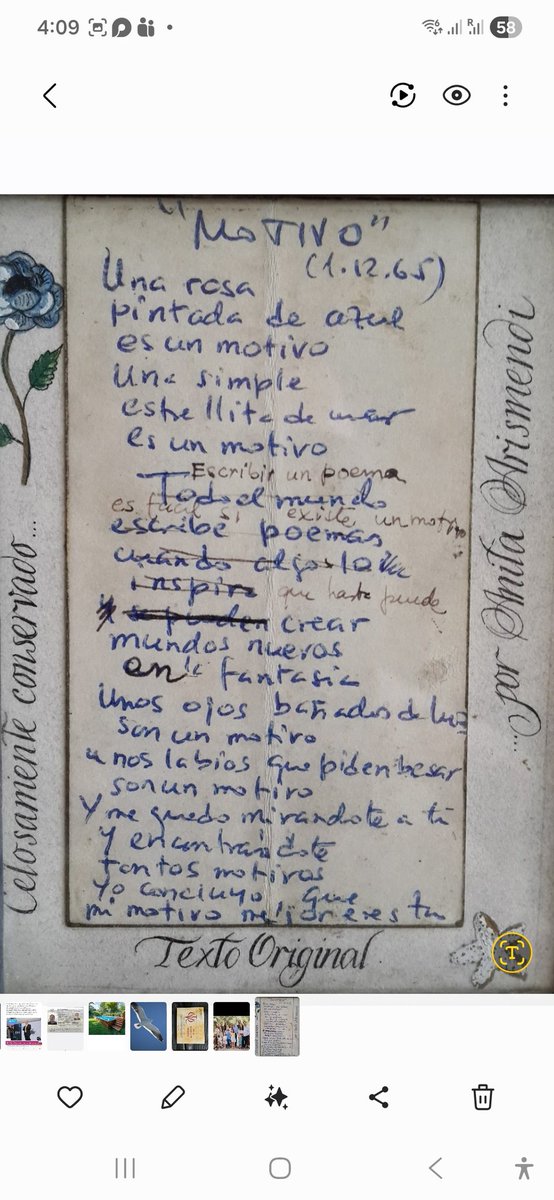 4:09
58
"MOTIVO"
(1.12.65)
Una rosa
pintada de azul
es un motivo
Una simple
estrellita de mar
es un motivo
Escribir un poema
Todo el mundo
es fácil si existe un motivo
escribe poemas
cuando algo
inspira que hasta puede
y pueden crear
mundos nuevos
en la fantasia
Unos ojos bañados de luz
son un motivo
unos labios que piden besar
son un motivo
Y me quedo mirandote a tí
y encontrandote
tantos motivos
Yo concluyo que
mi motivo mejor eres tu
Celosamente conservado...
...por Anita Arismendi
Texto Original
T